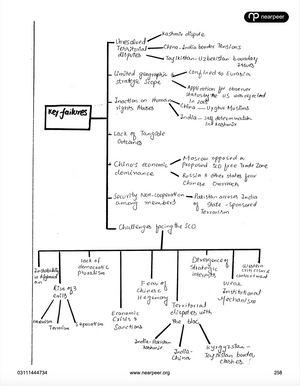 nearpeer
Kashmir dispute
Unresolved
Territorial
disputes
China-India border Tensions
Tajikistan-Uzbekistan boundary
issues
Limited geographic &
strategic scope
Confined to Eurasia
Application for observer
status by the US was rejected
in 2005
Inaction on Human
rights Abuses
China - Uyghur Muslims
India - Self determination
in Kashmir
Key failures
Lack of Tangible
Outcomes
China's economic
dominance
Moscow opposed a
proposed SCO free Trade Zone
Russia & other states fear
Chinese Overreach
Security Non-cooperation
among members
Pakistan accuses India
of State-Sponsored
Terrorism
Challenges facing the SCO
Instability
in Afghanist
an
Rise of 3
evils
Extremism
Terrorism
Separatism
lack of
democratic
pluralism
Economic
Crises &
Sanctions
Fear of
Chinese
Hegemony
Territorial
disputes with
the bloc
India-Pakistan
Kashmir
India-
China
Kyrgyzstan-
Tajikistan border
clashes
Divergence of
Strategic
interests
Weak
Institutional
Mechanism
Western
Criticism &
containment
03111444734
www.nearpeer.org
258